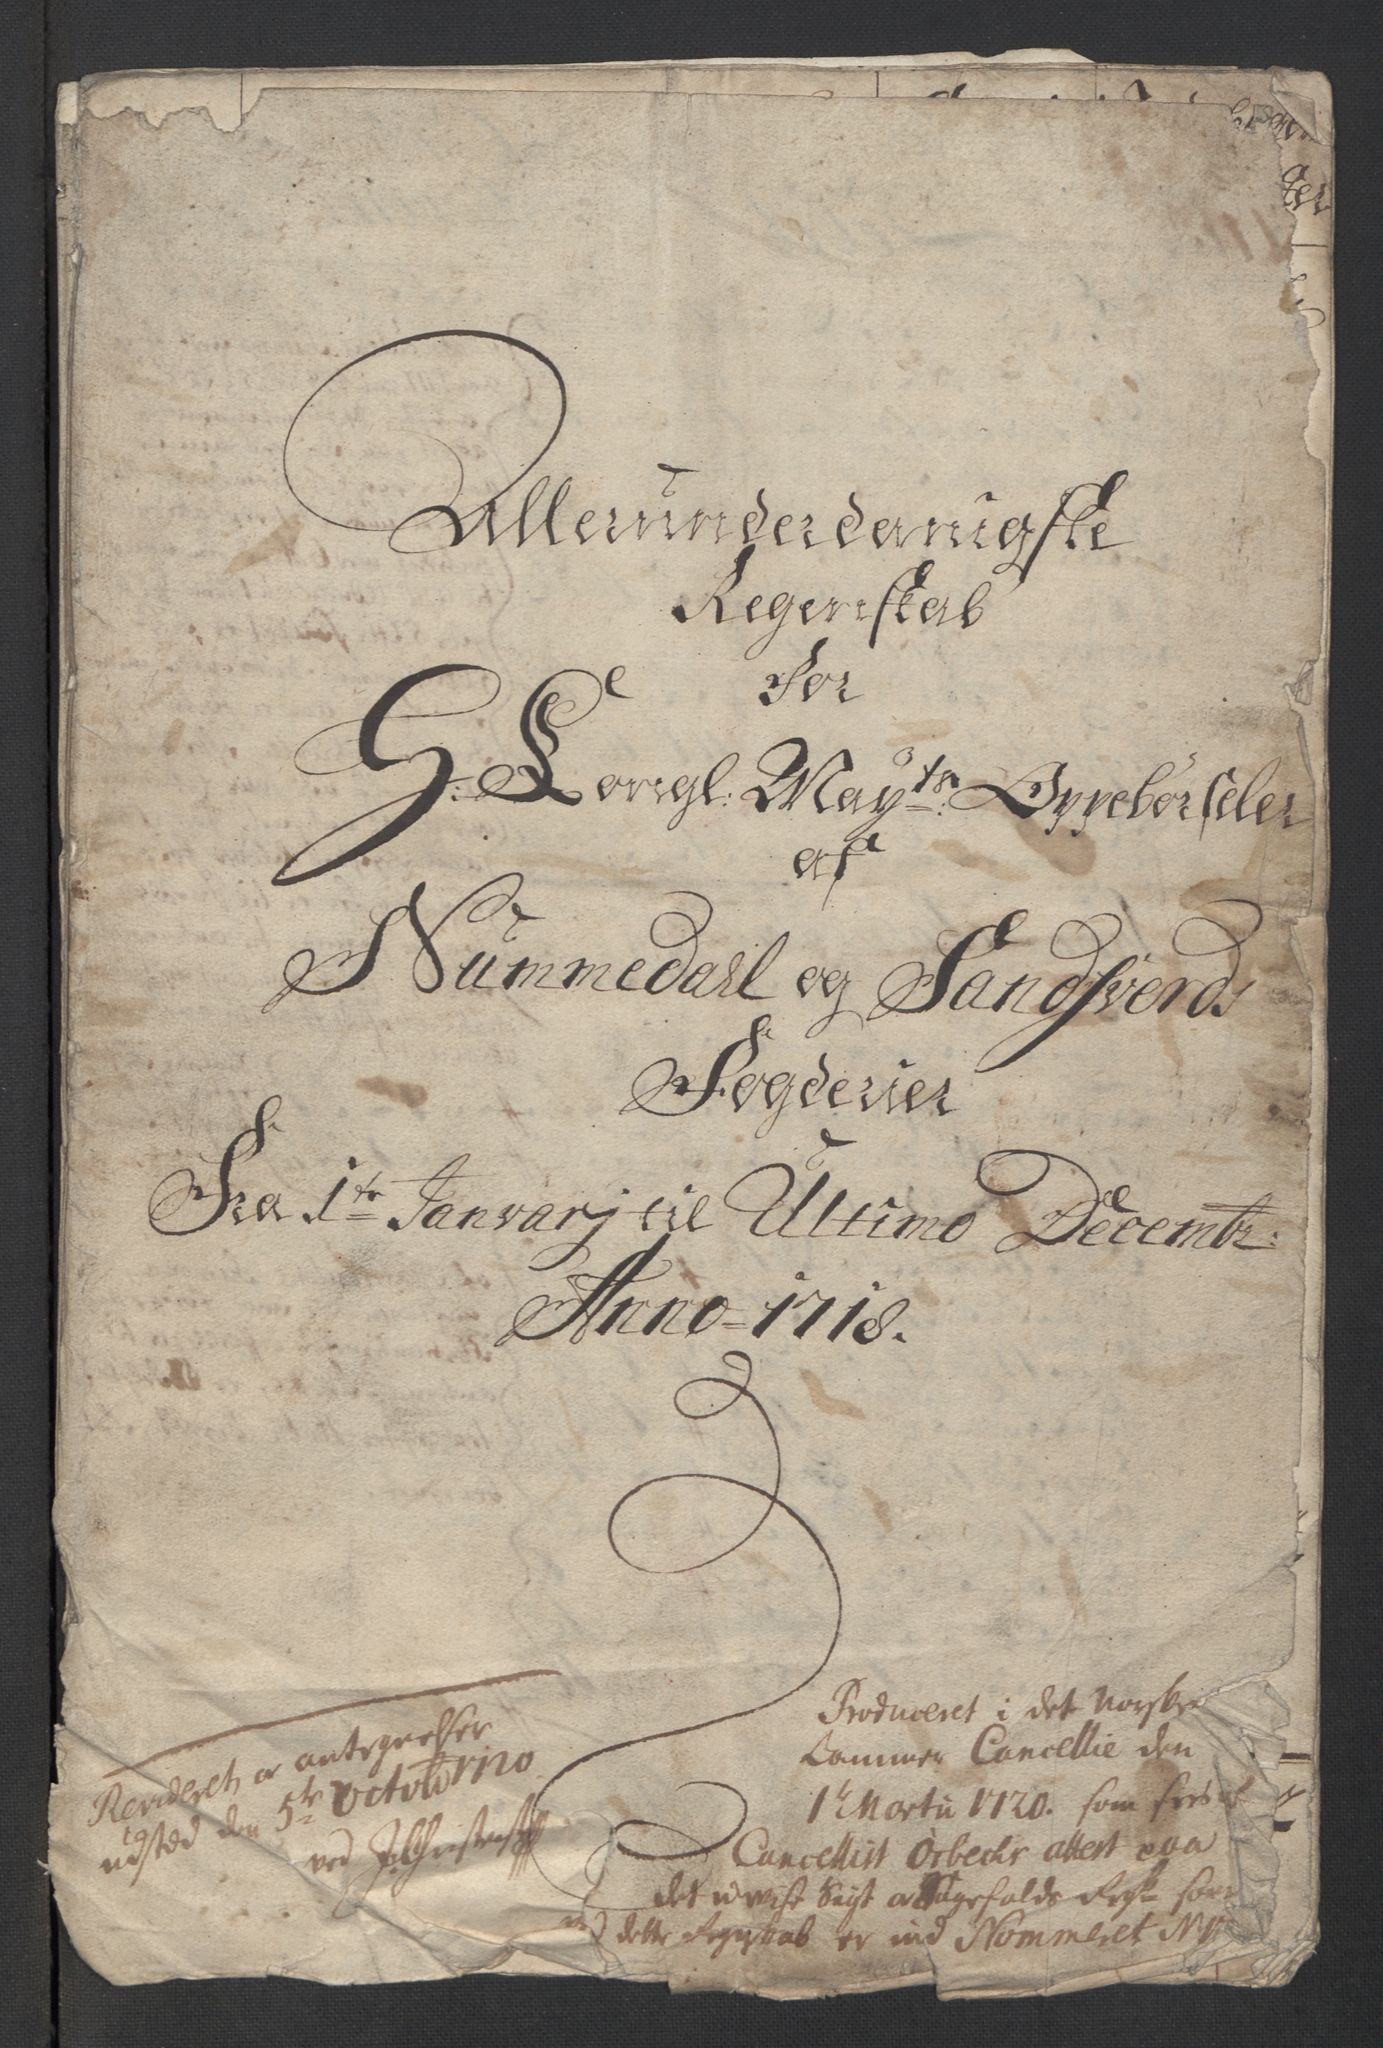 Allerunderdanigste
Regenskab
For
H: Kongl: Mayts: Oppebørseler
af
Nummedahl og Sandsverds
Fogderier
Fra 1te Janvarj til Ultimo Decembr:
Anno 1718.
Revideret, er antegnelser
udsted den 5te Octobr 1720
ved
Produceret i det Norske
Cammer Cancellie den
1te Martii 1720. som
Cancellist Örbechs attest paa
det
dette Regnskab er ind Nommeret